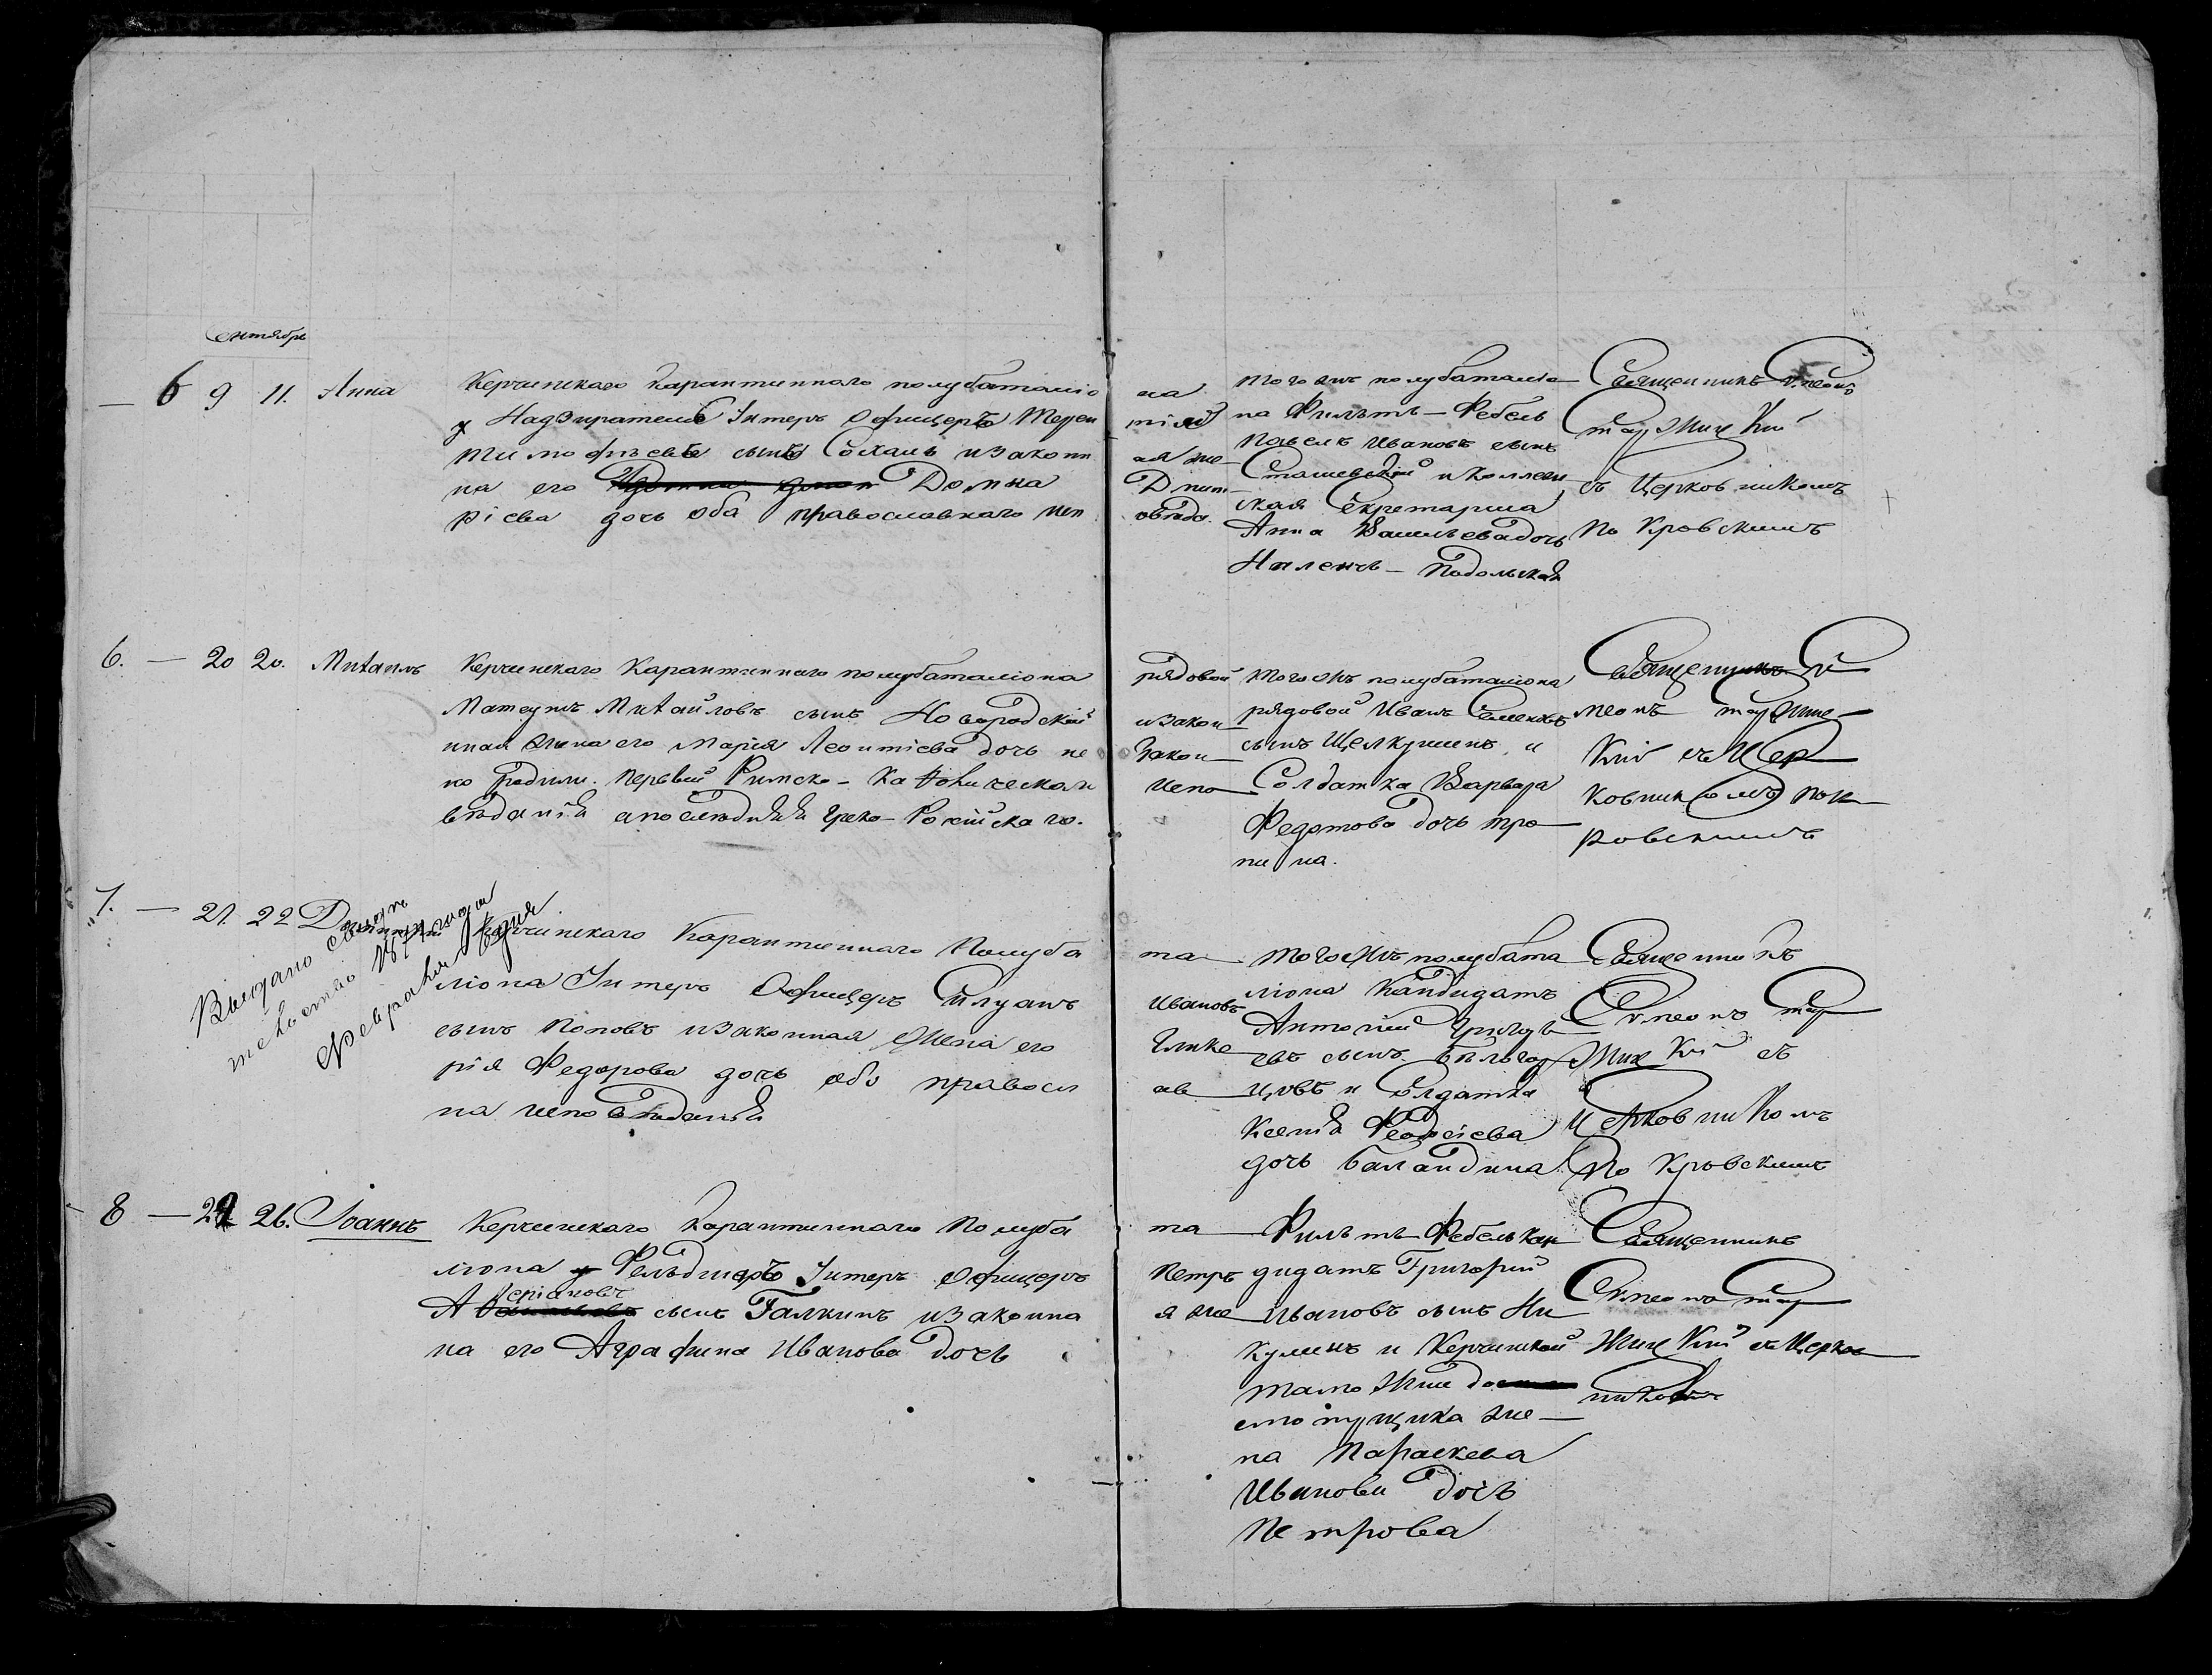 Сентябрь
— 6 9 11. Анна
Керчинскаго карантиннаго полубаталіо
у Надзирателя Унтеръ Офицеръ Терен
Тимофѣевъ сынъ Сохань изаконн
на его Домна
ріева дочь оба православнаго исп
на
тій
ая же
Дмит
овѣда.
тогожъ полубаталіо
на Фильтъ-Фебель
Павелъ Ивановъ сынъ
Сташевскій и Коллеж
ская Секретарша
Анна Васильева дочь
Подольская
Священникъ Сѵмеонъ
съ Церковникомъ
Покровскимъ
6. — 20 20. Михаилъ
Керчинскаго Карантиннаго полубаталіона
Матеушъ Михайловъ сынъ Новородскій
нная жена его Марія Леонтіева дочь не
но родили. Первый Римско-Католическаго
вѣданія а послѣдняя Греко-Россійскаго.
рядовой
изакон
Закон
испо
тогожъ полубаталіона
рядовой Иванъ Семеновъ
сынъ Щелкушинъ, и
Солдатка Варвара
Федотова дочь тро
нина.
Священникъ Сѵ
меонъ
кій съ Цер
ковникомъ Пок
ровскимъ
7. — 21. 22 Димитрій
Выдано свидѣ
тельство 1874 года
Февраля 6 дня
Керчинскаго Карантиннаго Полуба
ліона Унтеръ Офицеръ Силуанъ
сынъ Поповъ изаконная Жена его
рія Федорова дочь обо правосл
на исповѣданія
та
Ивановъ
Глике
ав
тогожъ полубата
ліона Кандидатъ
Антоній Григорь
евъ сынъ Бѣльгор
цовъ и Солдатка
Ксенія Федосіева
дочь Баландина
Священникъ
Сѵмеонъ
кій съ
Церковникомъ
Покровскимъ
8 — 24 26. Іоаннъ
Керчинскаго карантиннаго Полуба
ліона Фельдшеръ Унтеръ Офицеръ
сынъ Галкинъ изаконна
на его Аграфина Иванова дочь
та
Петръ
я же
Фильтъ Фебель Кан
дидатъ Григорій
Ивановъ сынъ Ни
кулинъ и Керчинской
таможни до
смотрщика же
на Параскева
Иванова дочь
Петрова
Священникъ
Сѵмеонъ
кій съ Церков
никомъ